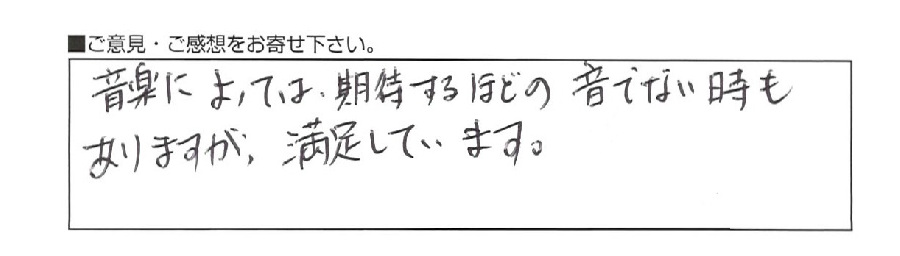 ■ご意見・ご感想をお寄せ下さい。
音楽によっては、期待するほどの音でない時も
ありますが、満足しています。